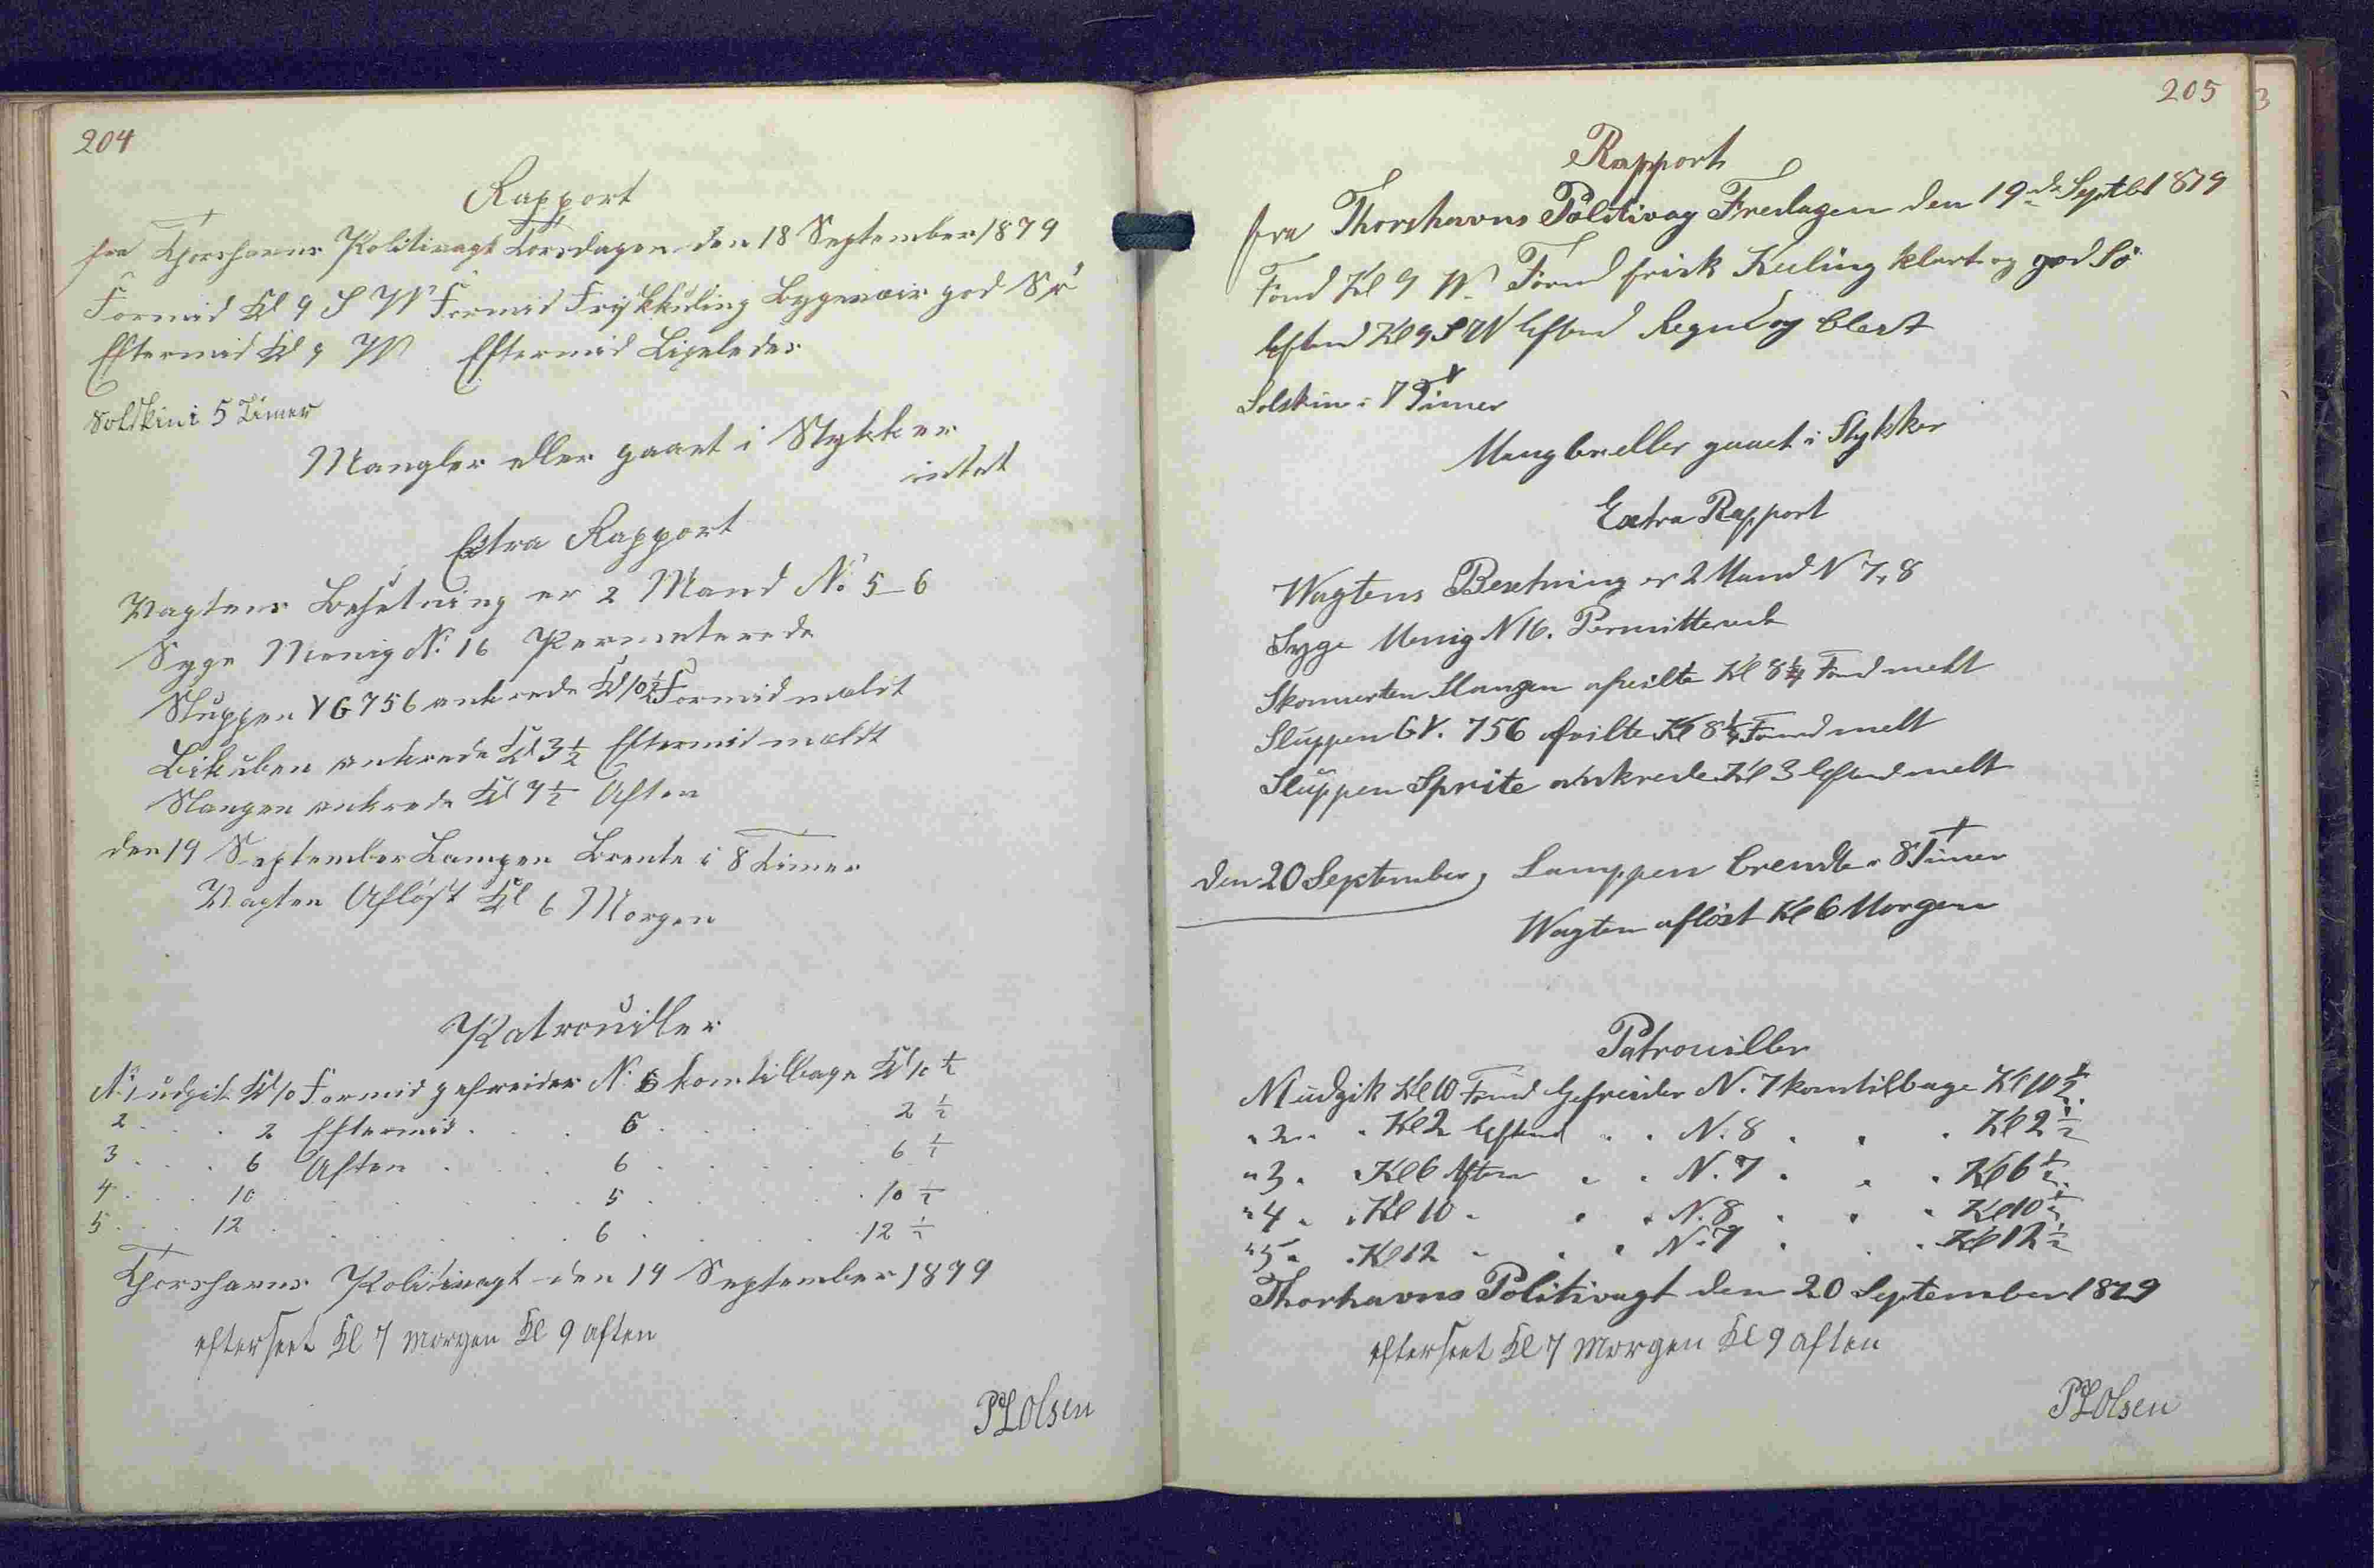 204
Rapport
fra Thorshavns Politivagt Torsdagen den 18 September 1879
Formid Kl 9 S W Formid Frisk Kuling Bygeveir god Sø
Eftermid Kl 9 W Eftermid Ligeledes
Solskin i 5 Timer
Mangler eller gaaet i Stykker
intet
Extra Rapport
Vagtens Besetning er 2 Mand No 5-6
Syge Menig No 16 Permiterede
Sluppen VG 756 ankrede Kl 10½ Formid meldt
Bikuben ankrede Kl 3½ Eftermid meldt
Slangen ankrede Kl 9½ Aften
den 19 September Lampen Brente i 8 Timer
Vagten Afløst Kl 6 Morgen
Patrouiller
No 1 udgik Kl 10 Formid gefreider No 5 kom tilbage Kl 10 ½
2 . . . 2 Eftermid . . . 6 . . . 2 ½
3 . . . 6 Aften . . . 6 . . . 6 ½
4 . . . 10 . . . 5 . . . 10 ½
5 . . . 12 . . . 6 . . . 12 ½
Thorshavns Politivagt den 19 September 1879
efterseet Kl 7 Morgen Kl 9 aften
PLOlsen
205
Rapport
fra Thorshavns Politivag Fredagen den 19de Septbr 1879
Fomd Kl 9 W. Formd frisk Kuling klart og god Sö
Eftmd Kl 9 SW Eftmd Regnd og blest
Solskin i 7 Timer
Mangler eller gaaet i Stykker
Extra Rapport
Wagtens Besetning er 2 Mand N 7, 8
Syge Menig N 16. Permitterede
Skonnerten Slangen afseilte Kl 8¼ Fomd melt
Sluppen GV. 756 afseilte Kl 8¼ Formd melt
Sluppen Sprite ankrede Kl 3 Eftmd melt
Den 20 September, Lamppen brendte i 8 Timer
Wagten aflöst Kl 6 Morgen
Patrouiller
N 1 udgik Kl 10 Fomd Gefreider N. 7 kom tilbage Kl 10 ½
" 2 . . Kl 2 Eftmd . . N. 8 . . . Kl 2 ½
" 3 . . Kl 6 Aften . . N. 7 . . . Kl 6 ½
" 4 . . Kl 10 . . . N. 8 . . . Kl 10 ½
" 5 . . Kl 12 . . . N. 7 . . . Kl 12 ½
Thorhavns Politivagt den 20 September 1879
efterseet Kl 7 Morgen Kl 9 aften
PLOlsen